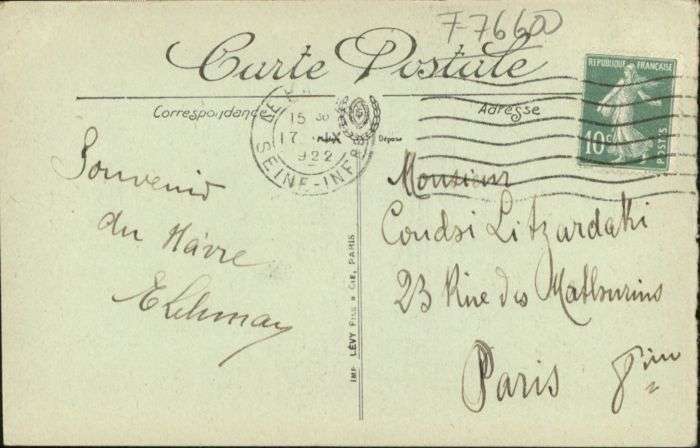 F7660
Carte Postale
Correspondance
Adresse
Dépose
RÉPUBLIQUE FRANÇAISE
10c
POSTES
15 30
17 IX
1922
SEINE-INFRE
Souvenir
du Hâvre
IMP. LÉVY FILS & CIE, PARIS
Monsieur
Coudsi Litzardaki
23 Rue des Mathurins
Paris 8ème